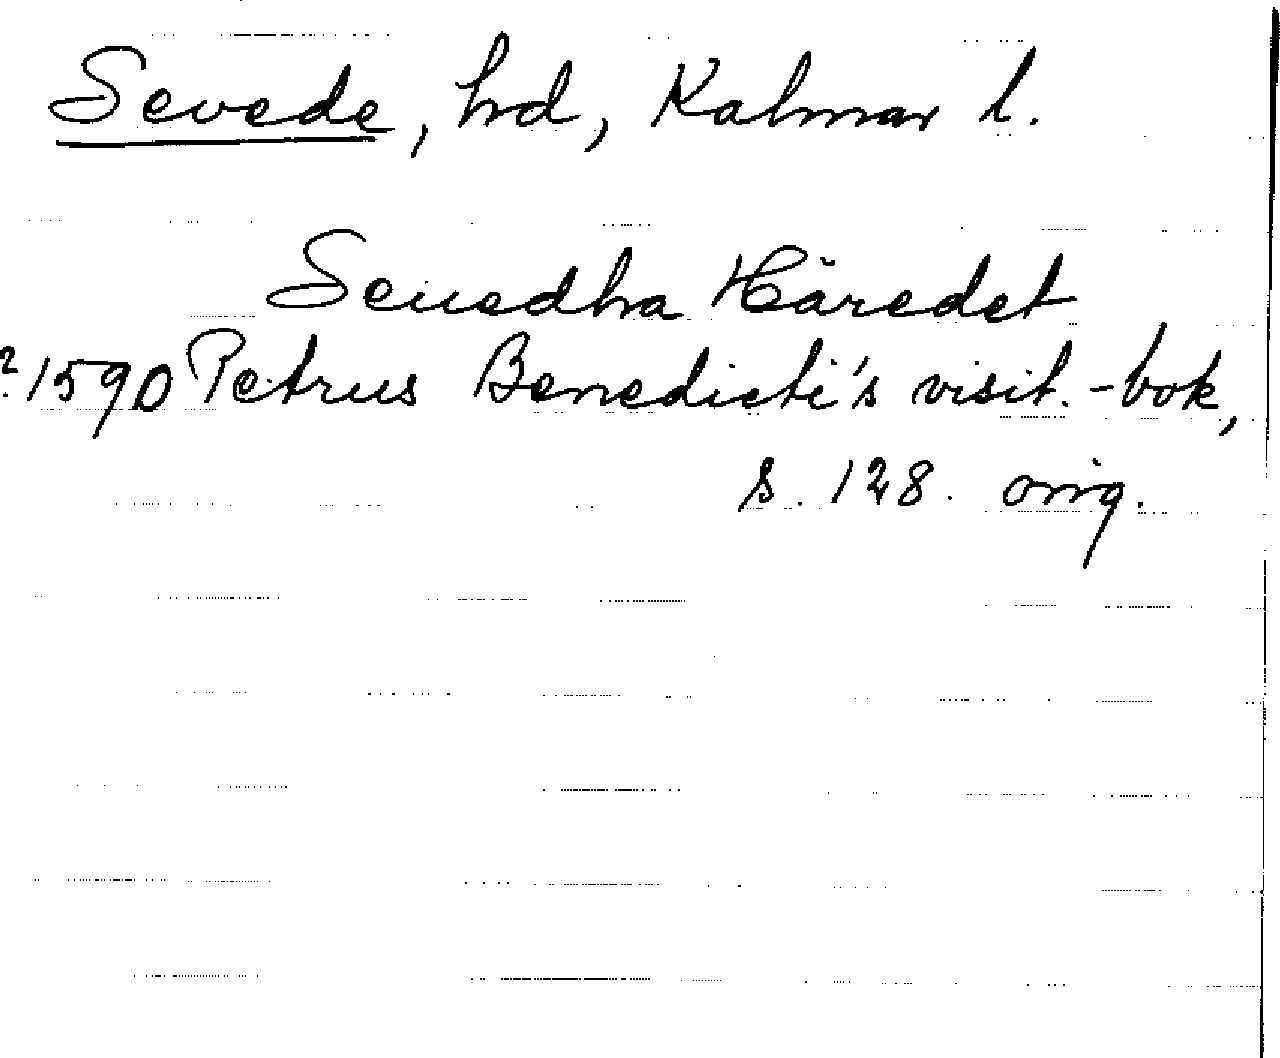 Sevede, hd, Kalmar l.
Seuedha Häredet
? 1590 Petrus Benedicti's visit.-bok,
s. 128. orig.